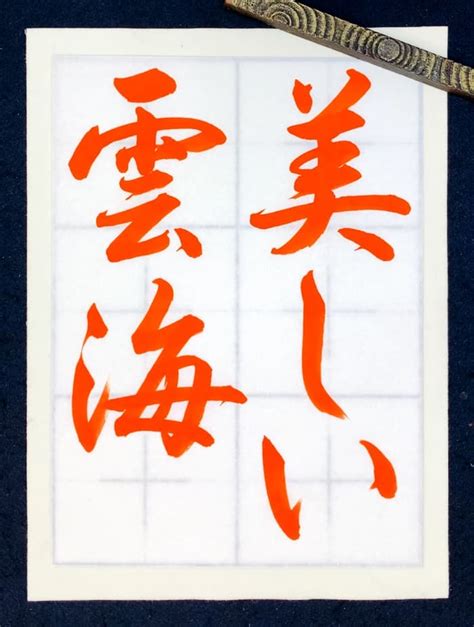 美しい
雲海